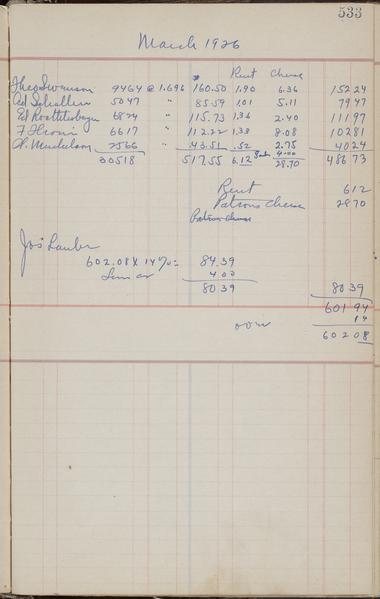 533
March 1926
Rent Cheese
Theo Swanson 9464 @ 1.696 160.50 1.90 6.36 152 24
Ad Schallen 5047 " 85.59 1.01 5.11 79 47
Ed 6824 " 115.73 1.36 2.40 111 97
F Thomi 6617 " 112.22 1.33 8.08 102 81
2566 " 43.51 .52 2.75 40 24
4.00
30518 517.55 6.12 28.70 486 73
Rent 6 12
Patrons Cheese 28 70
Patron Cheese
Jos Lauber
602.08 X 14% = 84.39
4.00
80 39 80 39
601 94
over 14
602 08